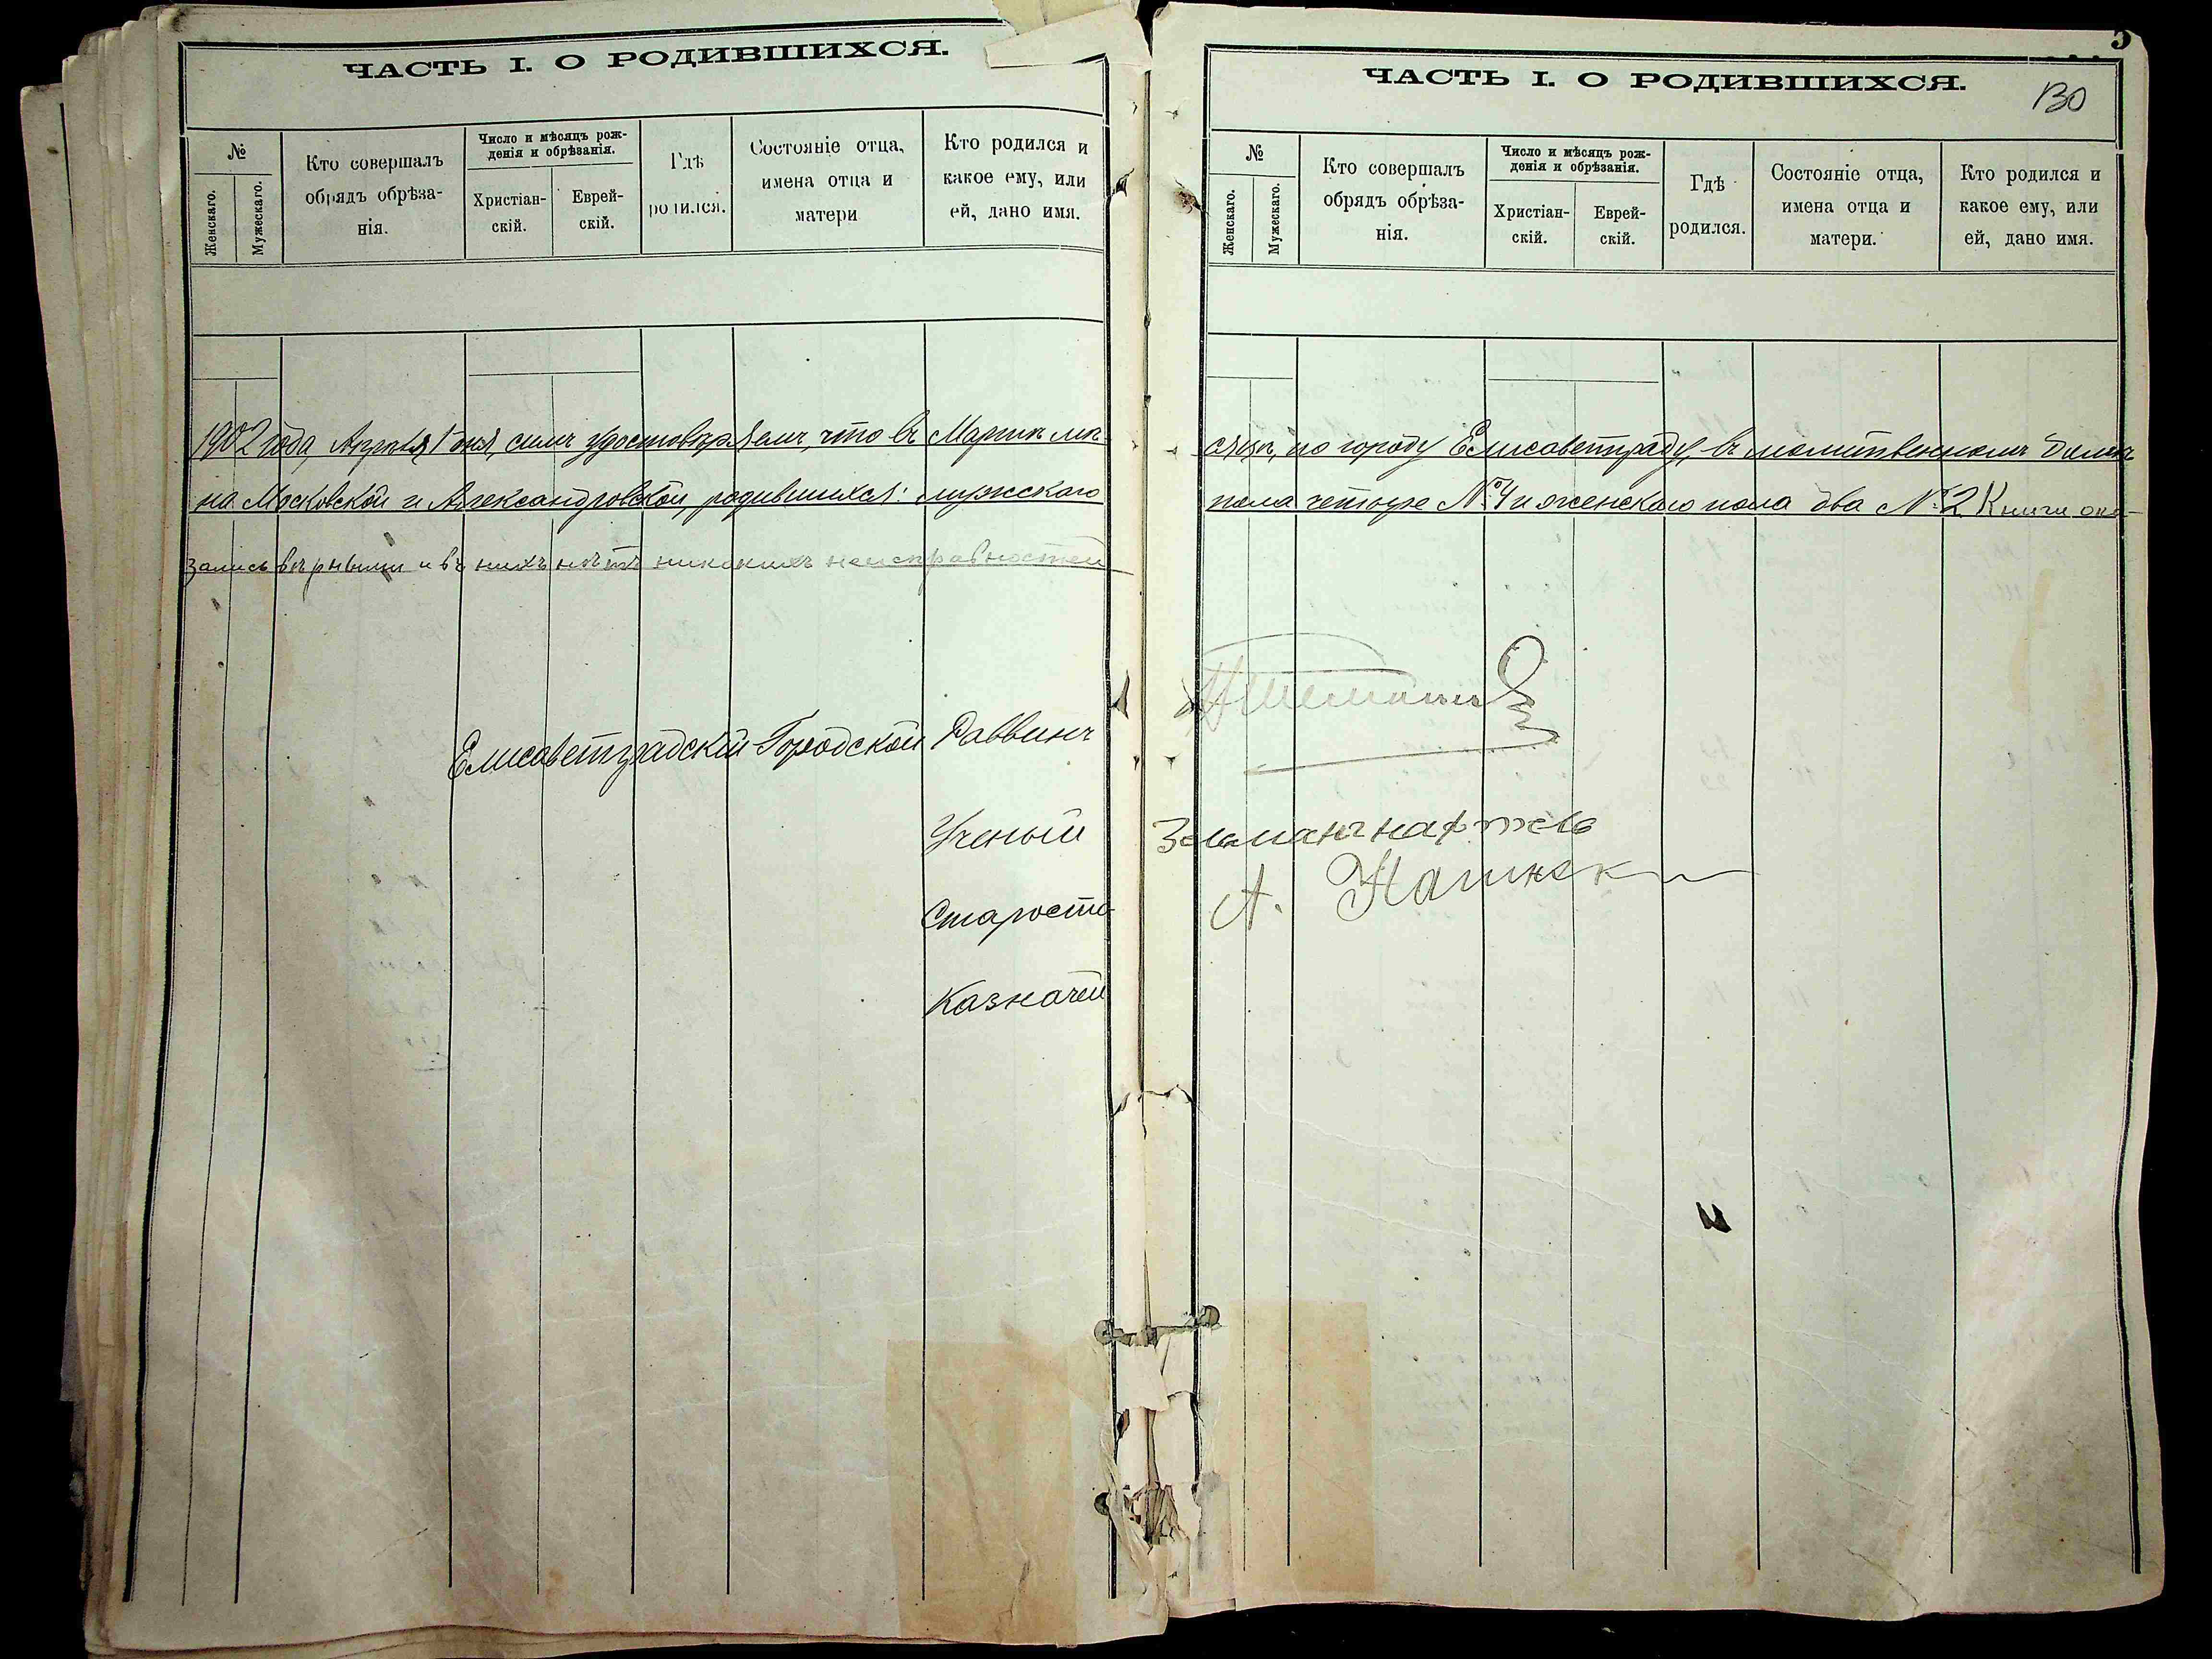 ЧАСТЬ I. О РОДИВШИХСЯ.
№
Женскаго.
Мужескаго.
Кто совершалъ
обрядъ обрѣза-
нія.
Число и мѣсяцъ рож-
денія и обрѣзанія.
Христіан-
скій.
Еврей-
скій.
Гдѣ
родился.
Состояніе отца,
имена отца и
матери
Кто родился и
какое ему, или
ей, дано имя.
1902 года, Апрѣля 1 дня, симъ удостовѣряемъ, что въ Мартѣ мѣ-
на Московской и Александровской, родившихся: мужскаго
зались вѣрными и въ нихъ нѣтъ никакихъ неисправностей
Елисаветградскій Городской Раввинъ
Ученый
Староста
Казначей
5
ЧАСТЬ I. О РОДИВШИХСЯ.
130
№
Женскаго.
Мужескаго.
Кто совершалъ
обрядъ обрѣза-
нія.
Число и мѣсяцъ рож-
денія и обрѣзанія.
Христіан-
скій.
Еврей-
скій.
Гдѣ
родился.
Состояніе отца,
имена отца и
матери.
Кто родился и
какое ему, или
ей, дано имя.
сяцѣ, по городу Елисаветграду, въ молитвенномъ домѣ
пола четыре № 4 и женскаго пола два № 2 Книги ока-
А.